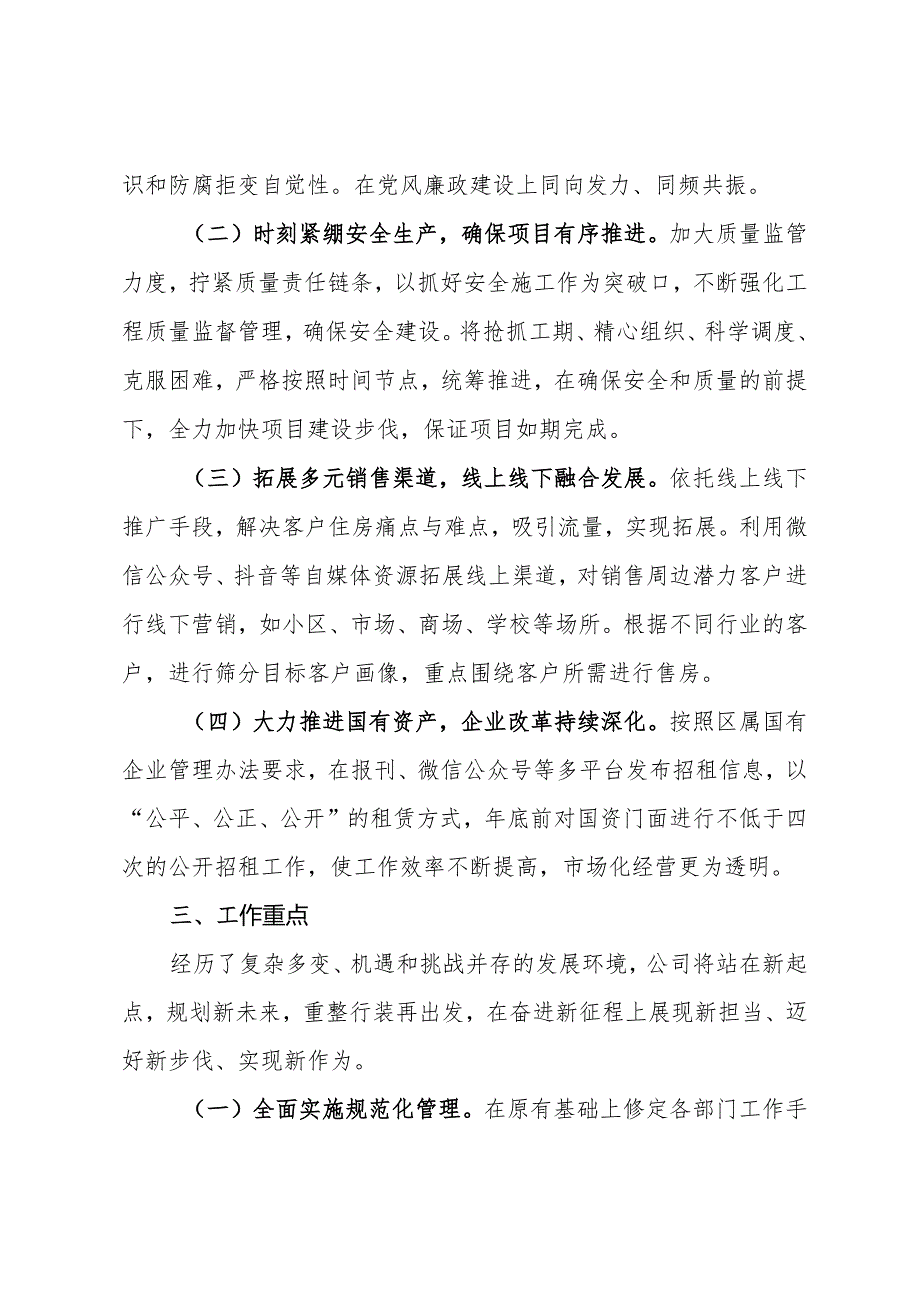 识和防腐拒变自觉性。在党风廉政建设上同向发力、同频共振。
（二）时刻紧绷安全生产，确保项目有序推进。加大质量监管
力度，拧紧质量责任链条，以抓好安全施工作为突破口，不断强化工
程质量监督管理，确保安全建设。将抢抓工期、精心组织、科学调度、
克服困难，严格按照时间节点，统筹推进，在确保安全和质量的前提
下，全力加快项目建设步伐，保证项目如期完成。
（三）拓展多元销售渠道，线上线下融合发展。依托线上线下
推广手段，解决客户住房痛点与难点，吸引流量，实现拓展。利用微
信公众号、抖音等自媒体资源拓展线上渠道，对销售周边潜力客户进
行线下营销，如小区、市场、商场、学校等场所。根据不同行业的客
户，进行筛分目标客户画像，重点围绕客户所需进行售房。
（四）大力推进国有资产，企业改革持续深化。按照区属国有
企业管理办法要求，在报刊、微信公众号等多平台发布招租信息，以
“公平、公正、公开”的租赁方式，年底前对国资门面进行不低于四
次的公开招租工作，使工作效率不断提高，市场化经营更为透明。
三、工作重点
经历了复杂多变、机遇和挑战并存的发展环境，公司将站在新起
点，规划新未来，重整行装再出发，在奋进新征程上展现新担当、迈
好新步伐、实现新作为。
（一）全面实施规范化管理。在原有基础上修定各部门工作手